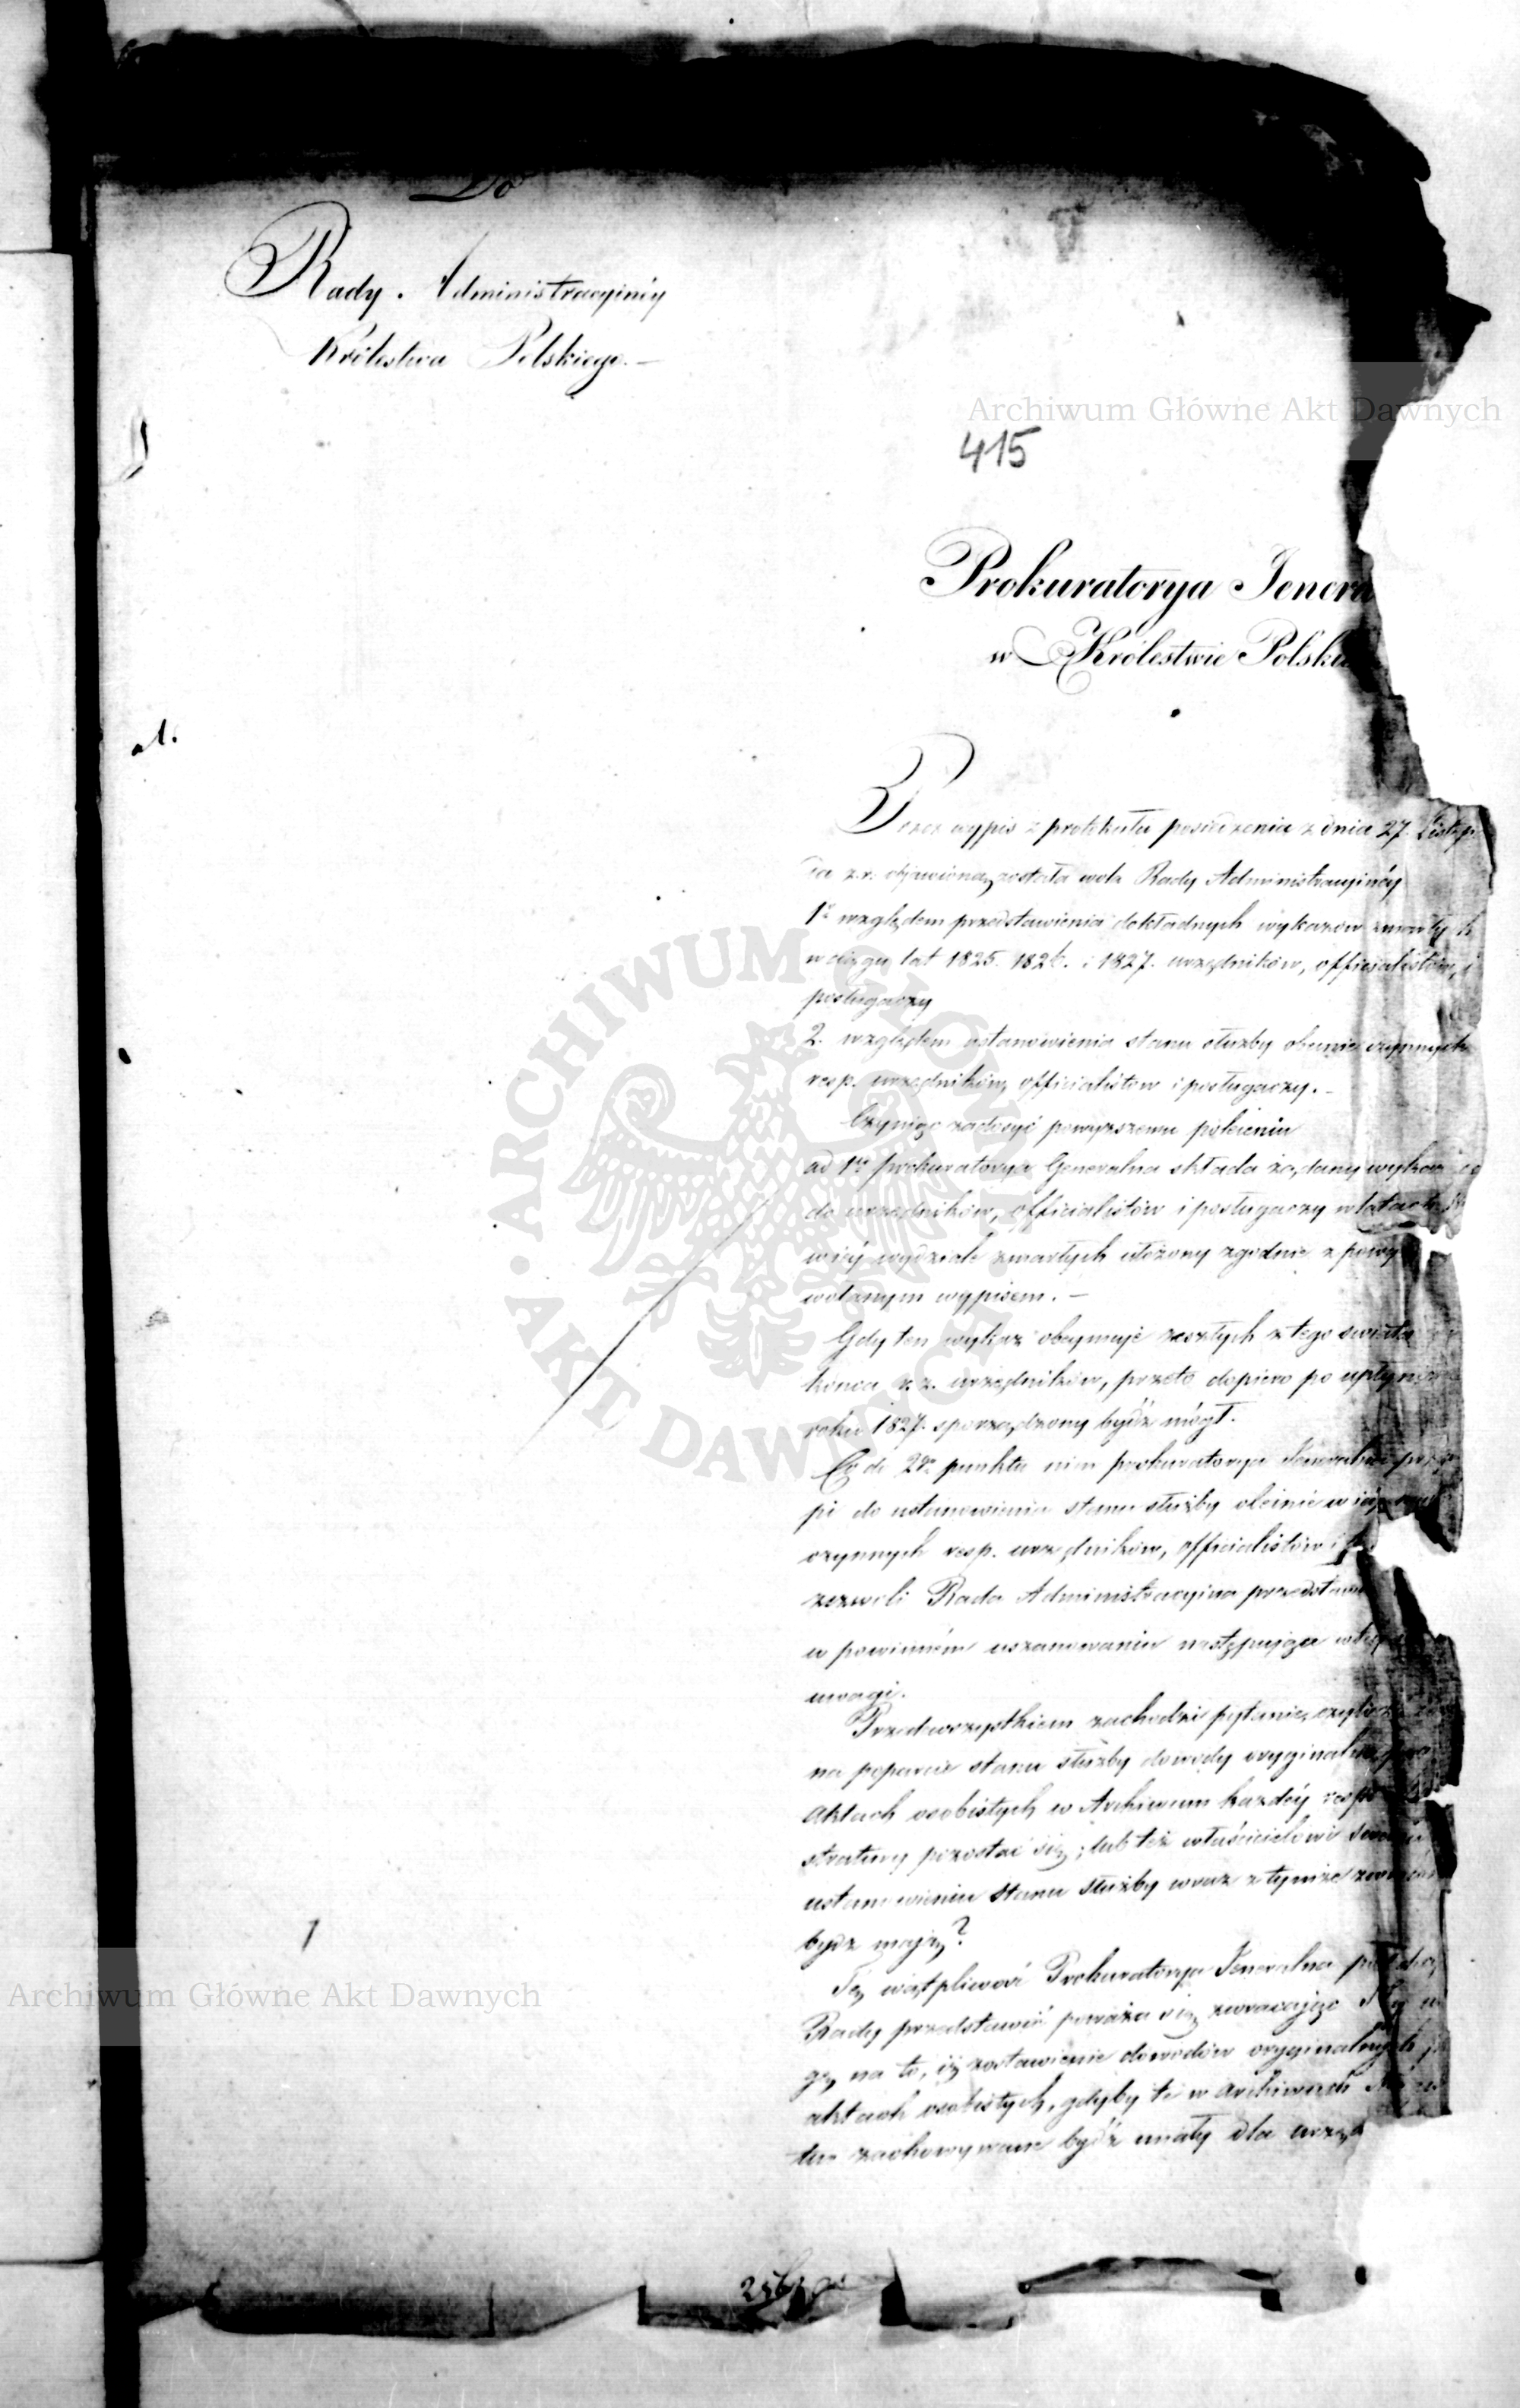 Do
Rady Administracyinéy
Królestwa Polskiego.—
Archiwum Główne Akt Dawnych
415
Prokuratorya Jenera
w Królestwie Polski
Przez wypis z protokułu posiedzenia z dnia 27. Listop
da z.r. objawioną została wola Rady Administracyinéy
1º względem przedstawienia dokładnych wykazów zmarłych
w ciągu lat 1825. 1826. i 1827. urzędników, officialistów, i
posługaczy
2. względem ustanowienia stanu służby obecnie czynnych
resp. urzędników, officialistów i posługaczy.—
Czyniąc zadosyć powyższemu poleceniu
ad 1m prokuratorya Generalna składa żądany wykaz co
do urzędników, officialistów i posługaczy w latach
w iéy wydziale zmarłych ułożony zgodnie z powy
wołanym wypisem.—
Gdy ten wykaz obeymuje zeszłych z tego świata
końca r.z. urzędników, przeto dopiero po upłynie
roku 1827. sporządzony bydź mógł.
Co do 2go punktu nim prokuratorya Jeneralna przy
pi do ustanowienia stanu służby obecnie w iéy
czynnych resp. urzędników, officialistów i
zezwoli Rada Administracyina przedstawić
w powinném uszanowaniu następujące
uwagi.
Przedewszystkiem zachodzi pytanie, czyli
na poparcie stanu służby dowody oryginalne
aktach osobistych w Archiwum każdéy resp
stratury pozostać się; lub też właścicielowi
ustanowieniu stanu służby wraz z tymże
bydź mają?
Tę wątpliwość Prokuratorya Jeneralna pod
Rady przedstawić poważa się zwracając Jéy u
gę na to, iż zostawienie dowodów oryginalnych
aktach osobistych, gdyby te w archiwach
zachowywane bydź miały dla urzęd
1
Archiwum Główne Akt Dawnych
ARCHIWUM GŁÓWNE • AKT DAWNYCH •